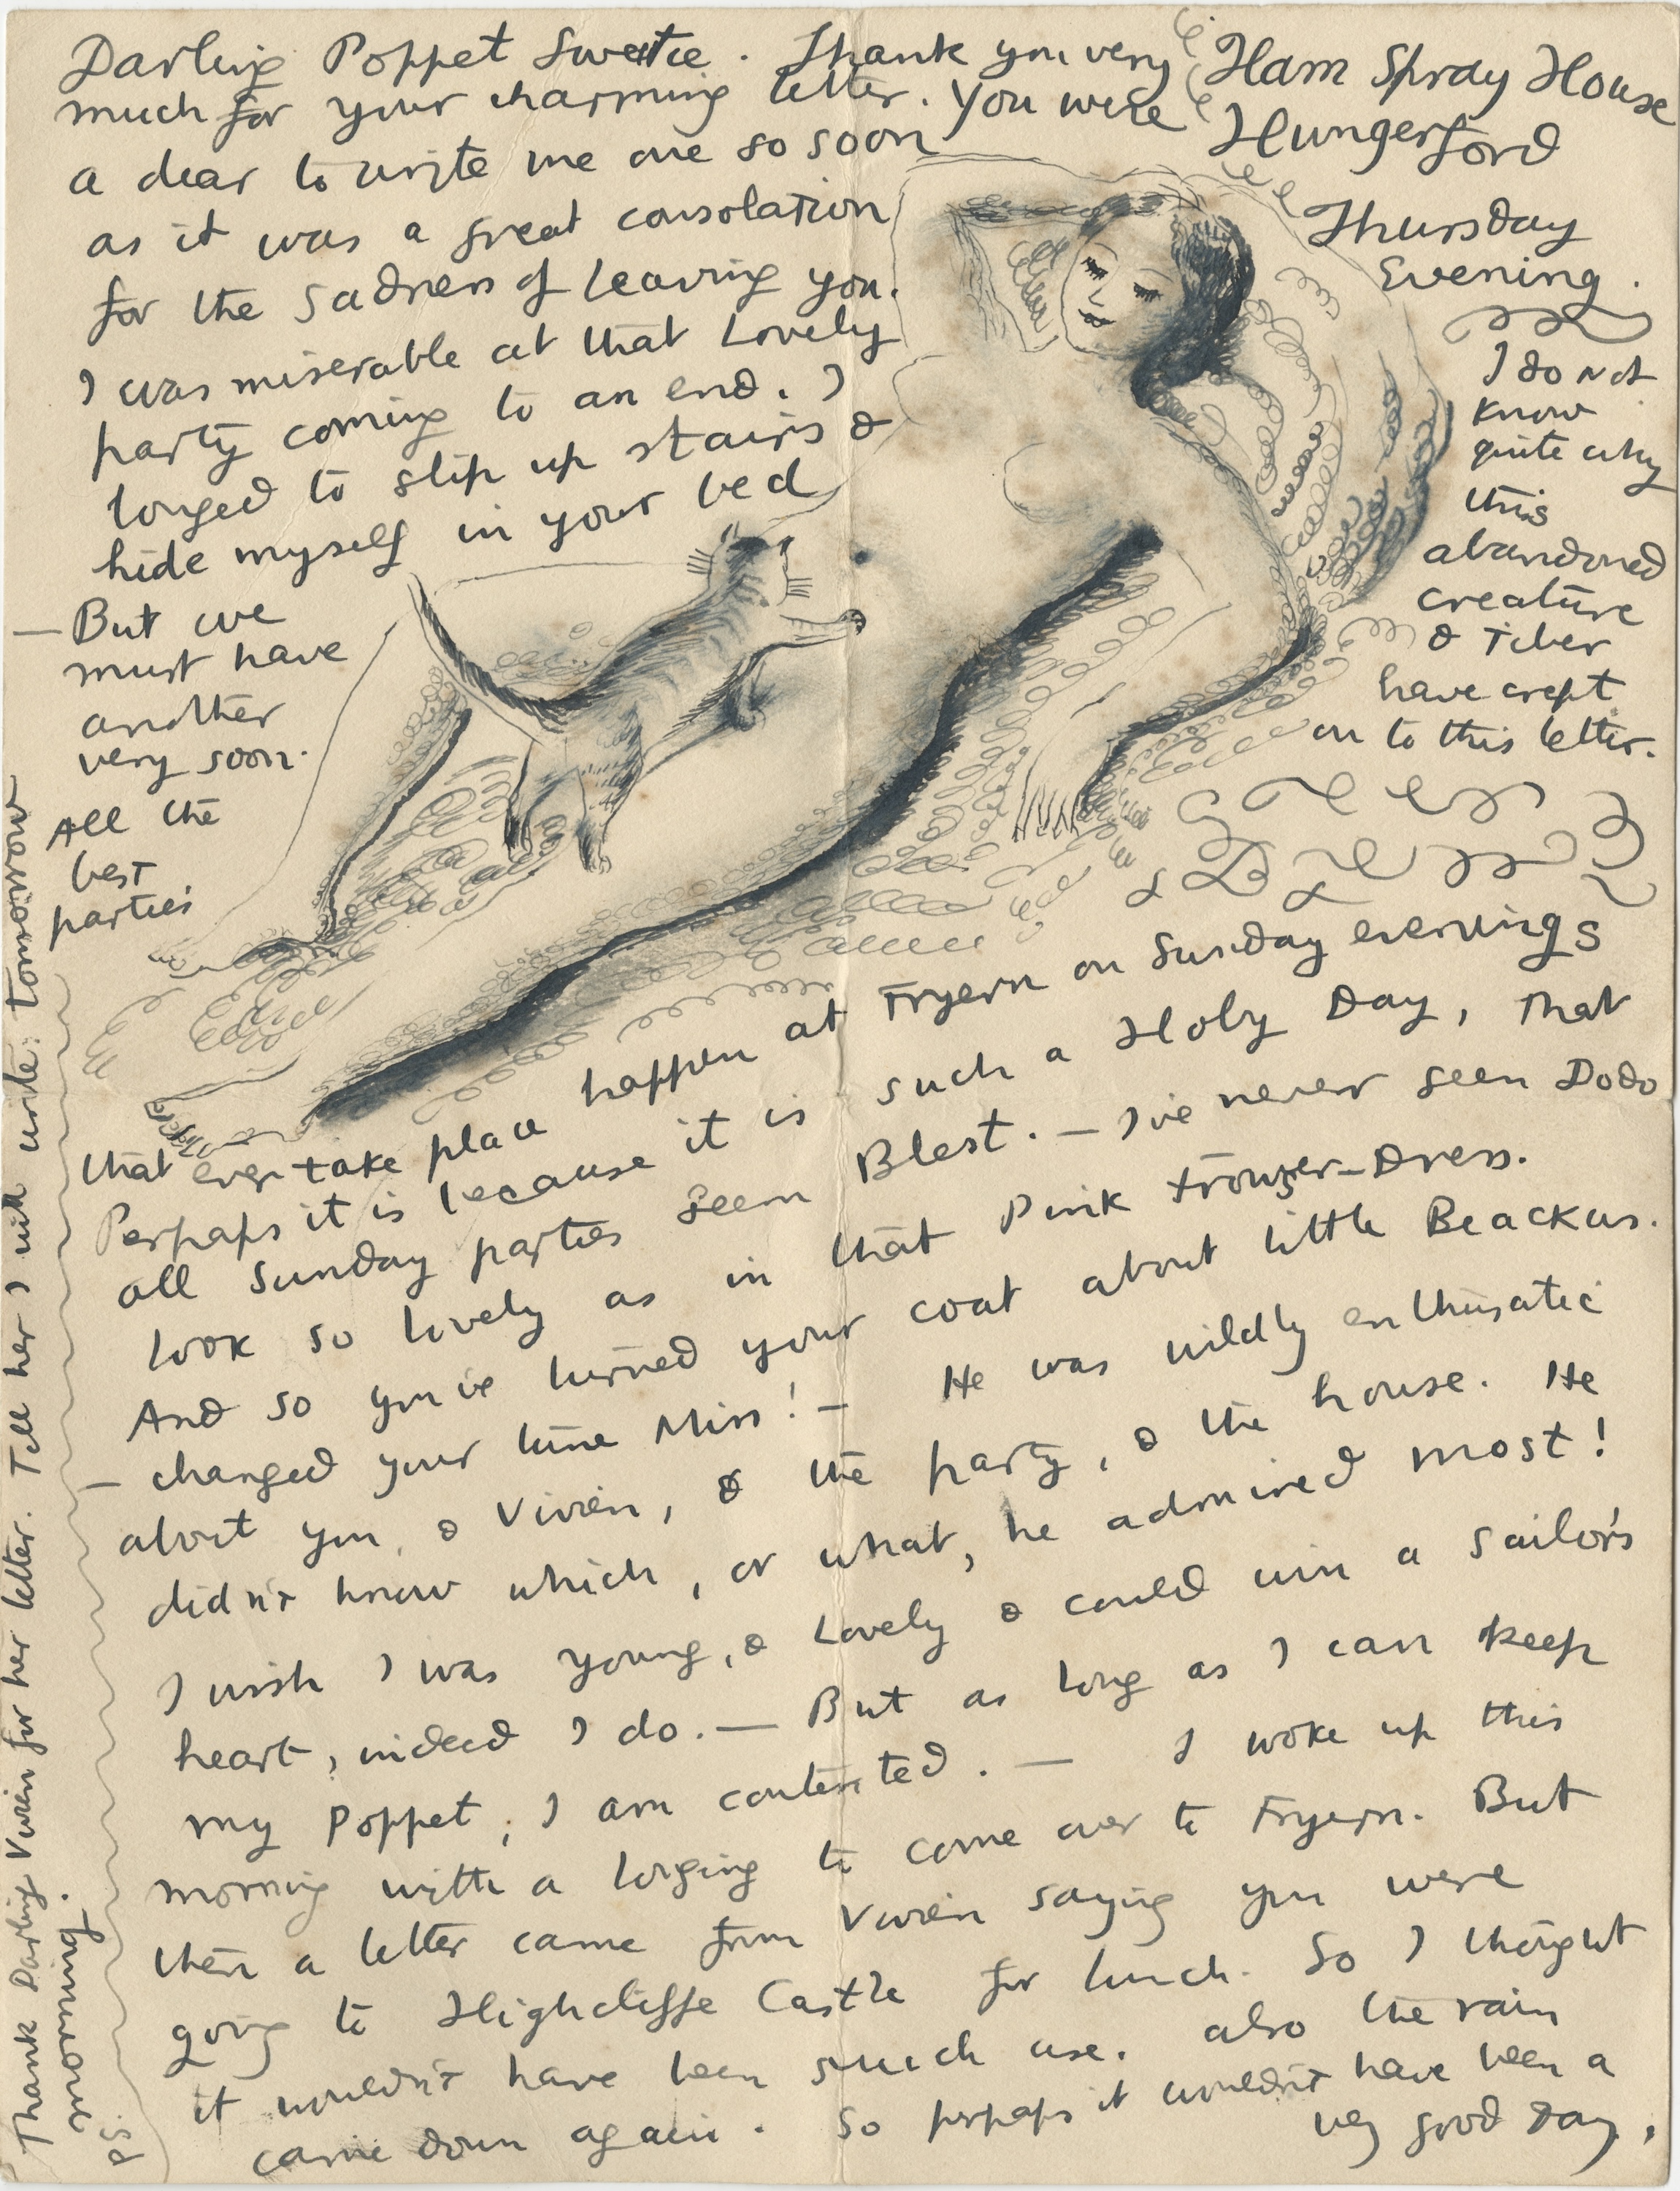 Ham Spray House
Hungerford
Thursday
Evening.
Darling Poppet Sweetie. Thank you very
much for your charming letter. You were
a dear to write me one so soon
as it was a great consolation
for the sadness of leaving you.
I was miserable at that Lovely
party coming to an end. I
longed to slip up stairs &
hide myself in your bed
— But we
must have
another
very soon.
All the
best
parties
that ever take place happen at Fryern on Sunday evenings
Perhaps it is because it is such a Holy Day, that
all Sunday parties seem Blest. — I've never seen Dodo
look so lovely as in that Pink Trouser-Dress.
And so you've turned your coat about little Beackus.
— changed your tune Miss! — He was wildly enthusiatic
about you, & Vivien, & the party, & the house. He
didn't know which, or what, he admired most!
I wish I was young, & Lovely & could win a sailor's
heart, indeed I do. — But as long as I can keep
my Poppet, I am contented. — I woke up this
morning with a longing to come over to Fryern. But
then a letter came from Vivien saying you were
going to Highcliffe Castle for lunch. So I thought
it wouldn't have been much use. also the rain
came down again. So perhaps it wouldn't have been a
very good day.
I do not
know
quite why
this
abandoned
creature
& Tiber
have crept
on to this letter.
PS. Thank Darling Vivien for her letter. Tell her I will write tomorrow
morning.